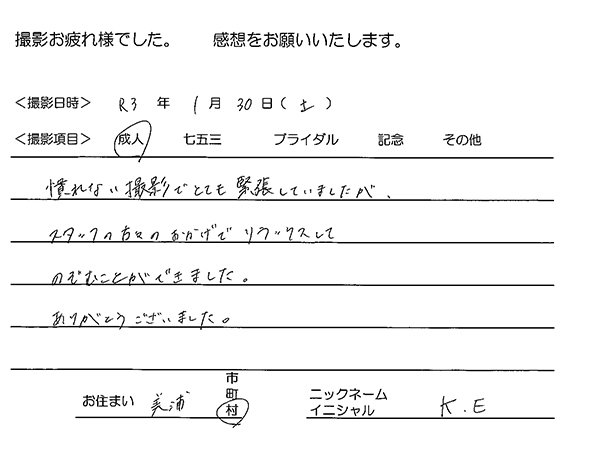 撮影お疲れ様でした。 感想をお願いいたします。
＜撮影日時＞ R3 年 1 月 30 日（ 土 ）
＜撮影項目＞ 成人 七五三 ブライダル 記念 その他
慣れない撮影でとても緊張していましたが、
スタッフの方々のおかげでリラックスして
のぞむことができました。
ありがとうございました。
お住まい 美浦 市 町 村
ニックネーム イニシャル K.E